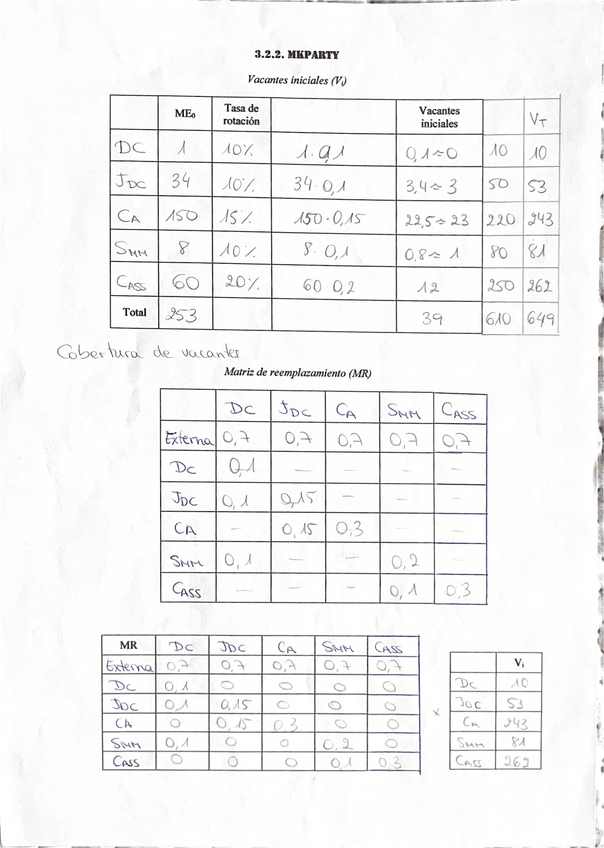 3.2.2. MKPARTY
Vacantes iniciales (Vi)
ME0 Tasa de rotación Vacantes iniciales VT
DC 1 10% 1·0,1 0,1≈0 10 10
JDC 34 10% 34·0,1 3,4≈3 50 53
CA 150 15% 150·0,15 22,5≈23 220 243
SMM 8 10% 8·0,1 0,8≈1 80 81
CASS 60 20% 60 0,2 12 250 262
Total 253 39 610 649
Cobertura de vacantes
Matriz de reemplazamiento (MR)
DC JDC CA SMM CASS
Externa 0,7 0,7 0,7 0,7 0,7
DC 0,1 — — — —
JDC 0,1 0,15 — — —
CA — 0,15 0,3 — —
SMM 0,1 — — 0,2 —
CASS — — — 0,1 0,3
MR DC JDC CA SMM CASS
Externa 0,7 0,7 0,7 0,7 0,7
DC 0,1 0 0 0 0
JDC 0,1 0,15 0 0 0
CA 0 0,15 0,3 0 0
SMM 0,1 0 0 0,2 0
CASS 0 0 0 0,1 0,3
×
Vi
DC 10
JDC 53
CA 243
SMM 81
CASS 262